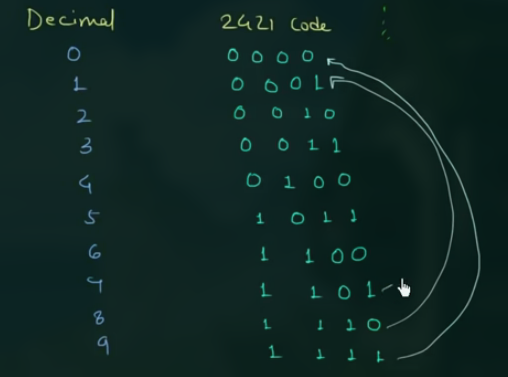 Decimal 2421 Code
0 0 0 0 0
1 0 0 0 1
2 0 0 1 0
3 0 0 1 1
4 0 1 0 0
5 1 0 1 1
6 1 1 0 0
7 1 1 0 1
8 1 1 1 0
9 1 1 1 1